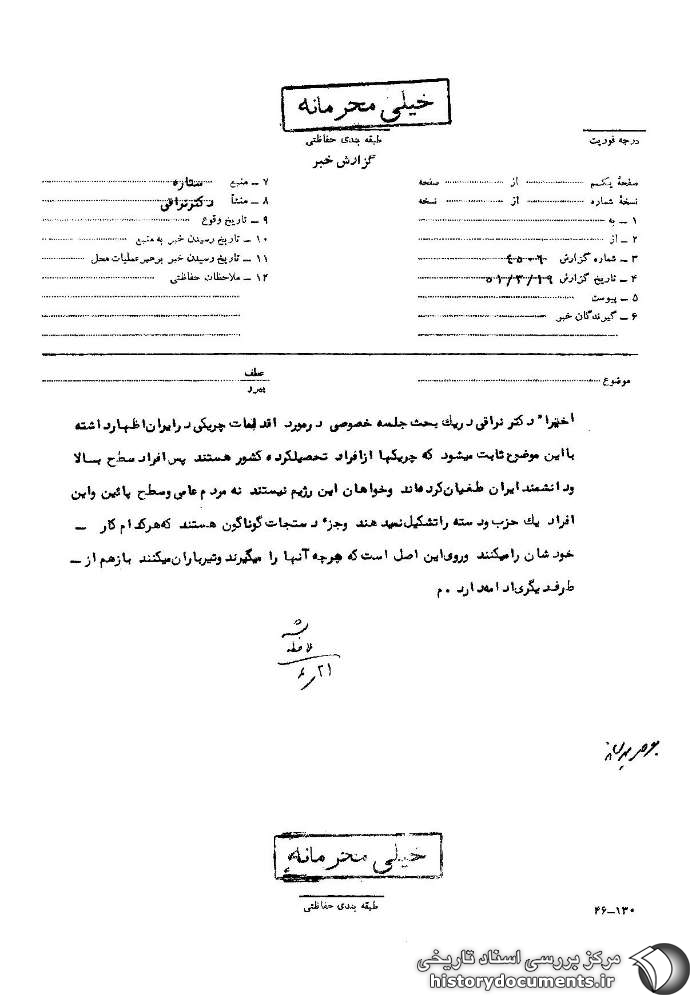 خیلی محرمانه
طبقه بندی حفاظتی
درجه فوریت
گزارش خبر
صفحهٔ یکم از صفحه
نسخهٔ شماره از نسخه
۱ ــ به
۲ ــ از
۳ ــ شماره گزارش
۴ ــ تاریخ گزارش ۵۱/۳/۱۹
۵ ــ پیوست
۶ ــ گیرندگان خبر
۷ ــ منبع ستاره
۸ ــ منشأ دکتر نراقی
۹ ــ تاریخ وقوع
۱۰ ــ تاریخ رسیدن خبر به منبع
۱۱ ــ تاریخ رسیدن خبر برهبر عملیات محل
۱۲ ــ ملاحظات حفاظتی
موضوع
عطف
پیرو
اخیرا" دکتر نراقی در یک بحث جلسه خصوصی در مورد اقدامات چریکی در ایران اظهار داشته
با این موضوع ثابت میشود که چریکها از افراد تحصیلکرده کشور هستند پس افراد سطح بالا
و دانشمند ایران طغیان کرده‌اند و خواهان این رژیم نیستند نه مردم عامی و سطح پائین و این
افراد یک حزب و دسته را تشکیل نمیدهند و جزء دستجات گوناگون هستند که هر کدام کار ــ
خودشان را میکنند و روی این اصل است که هرچه آنها را میگیرند و تیرباران میکنند باز هم از ــ
طرف دیگری ادامه دارد . م
۲۱
خیلی محرمانه
طبقه بندی حفاظتی
۴۶-۱۳۰
مرکز بررسی اسناد تاریخی
historydocuments.ir